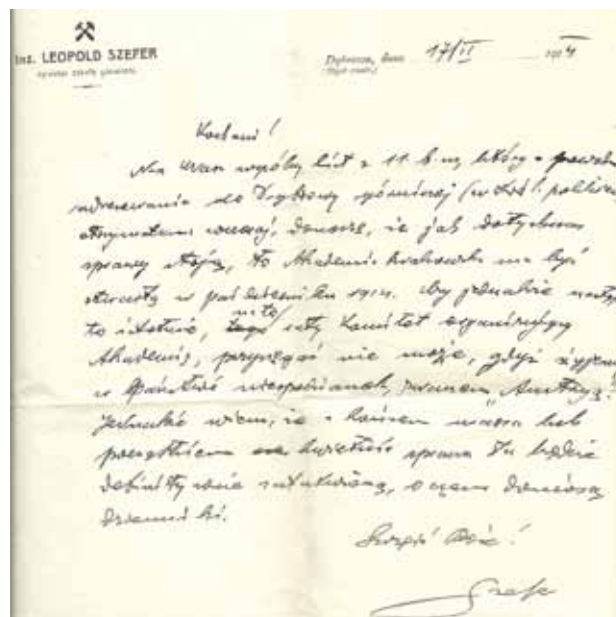 Inż. LEOPOLD SZEFER
dyrektor szkoły górniczej
Dąbrowa, dnia 17/II 1914
Kochani!
Na Wasz wspólny list z 11 b.m., który z powodu
adresowania do Dąbrowy górniczej (w Król. polskiem)
otrzymałem wczoraj, donoszę, że jak dotychczas
sprawy stoją, to Akademia krakowska ma być
otwartą w październiku 1914. Czy jednakże
to istotnie, na to cały Komitet organizujący
Akademię, przysięgać nie może, gdyż żyjemy
w Państwie niespodzianek, zwanem „Austryą”.
Jednakże wiem, że z końcem marca lub
początkiem kwietnia sprawa ta będzie
definitywnie załatwioną, o czem doniosą
dzienniki.
Szczęść Boże!
Szefer